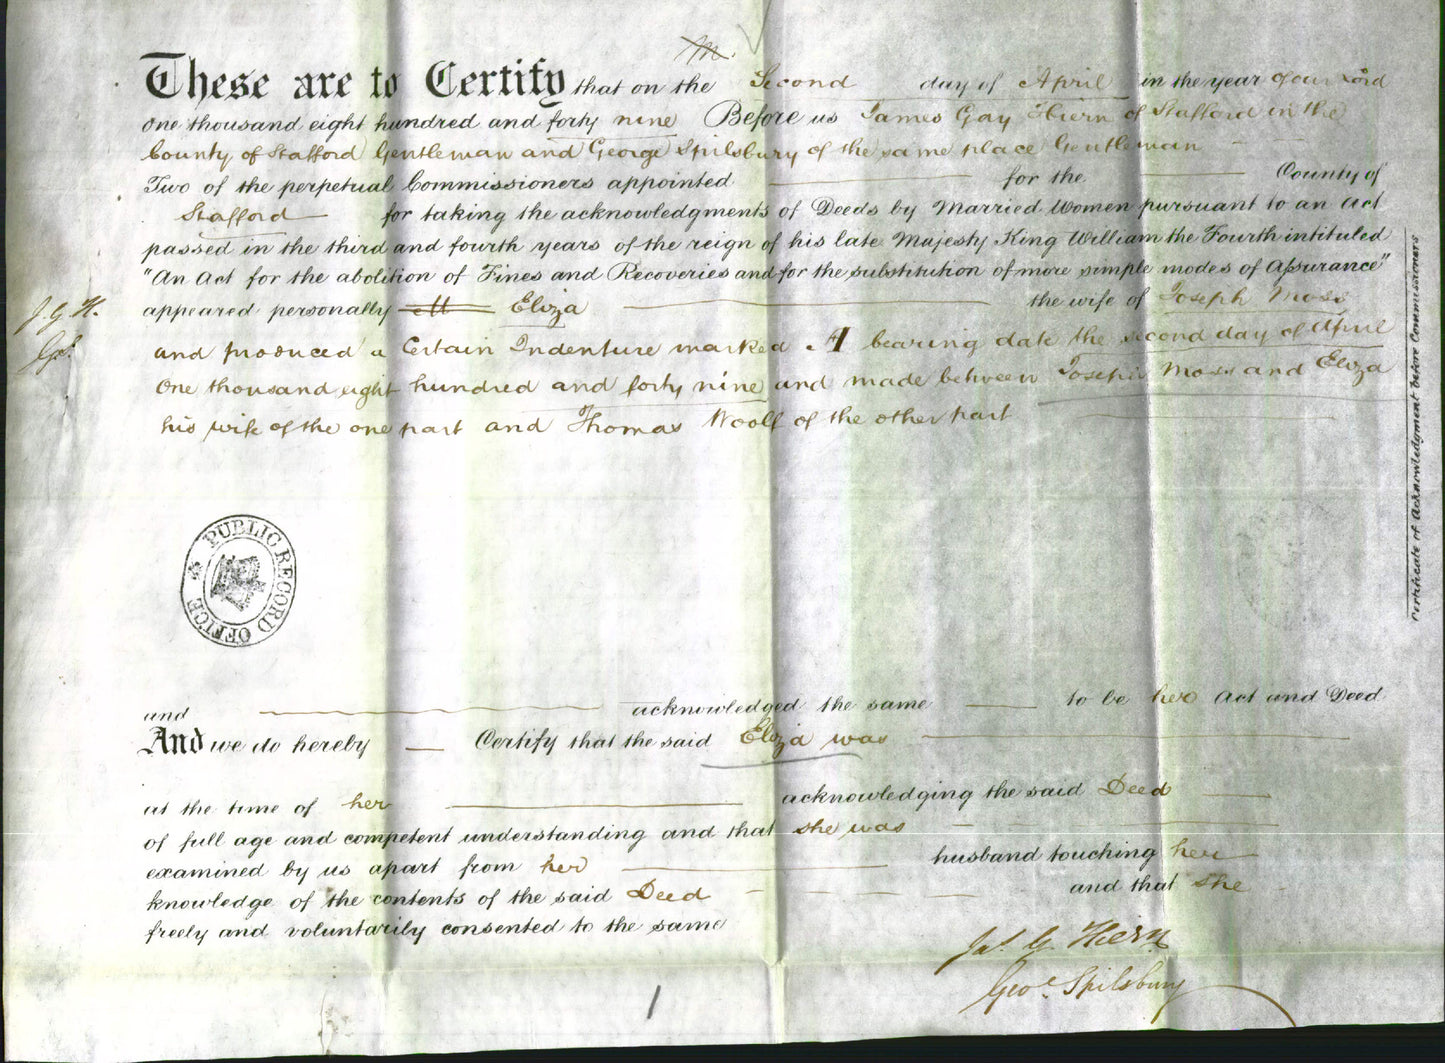 M.
These are to Certify that on the Second day of April in the year of our Lord
One thousand eight hundred and forty nine Before us James Gay Hiern of Stafford in the
County of Stafford Gentleman and George Spilsbury of the same place Gentleman
Two of the perpetual Commissioners appointed for the County of
Stafford for taking the acknowledgments of Deeds by Married Women pursuant to an Act
passed in the third and fourth years of the reign of his late Majesty King William the Fourth intituled
"An Act for the abolition of Fines and Recoveries and for the substitution of more simple modes of Assurance"
J. G. H.
appeared personally Eliza the wife of Joseph Moss
and produced a Certain Indenture marked A bearing date the second day of April
One thousand eight hundred and forty nine and made between Joseph Moss and Eliza
his wife of the one part and Thomas Woolf of the other part
PUBLIC RECORD OFFICE
and acknowledged the same to be her Act and Deed
And we do hereby Certify that the said Eliza was
at the time of her acknowledging the said Deed
of full age and competent understanding and that she was
examined by us apart from her husband touching her
knowledge of the contents of the said Deed and that she
freely and voluntarily consented to the same
Jas. G. Hiern
Geoe. Spilsbury
1
Certificate of Acknowledgment before Commissioners